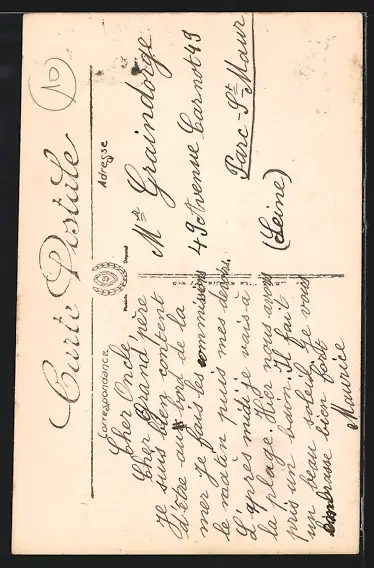 10
Carte Postale
Correspondance
Adresse
Cher Oncle
Cher Grand'père
Je suis bien content
d'être au bord de la
mer je fais les commissions
le matin puis mes devoirs.
L'après midi je vais à
la plage. Hier nous avons
pris un bain. Il fait
un beau soleil. Je vous
embrasse bien fort
Maurice
Mr Graindorge
49 Avenue Carnot 49
Parc-St-Maur
(Seine)